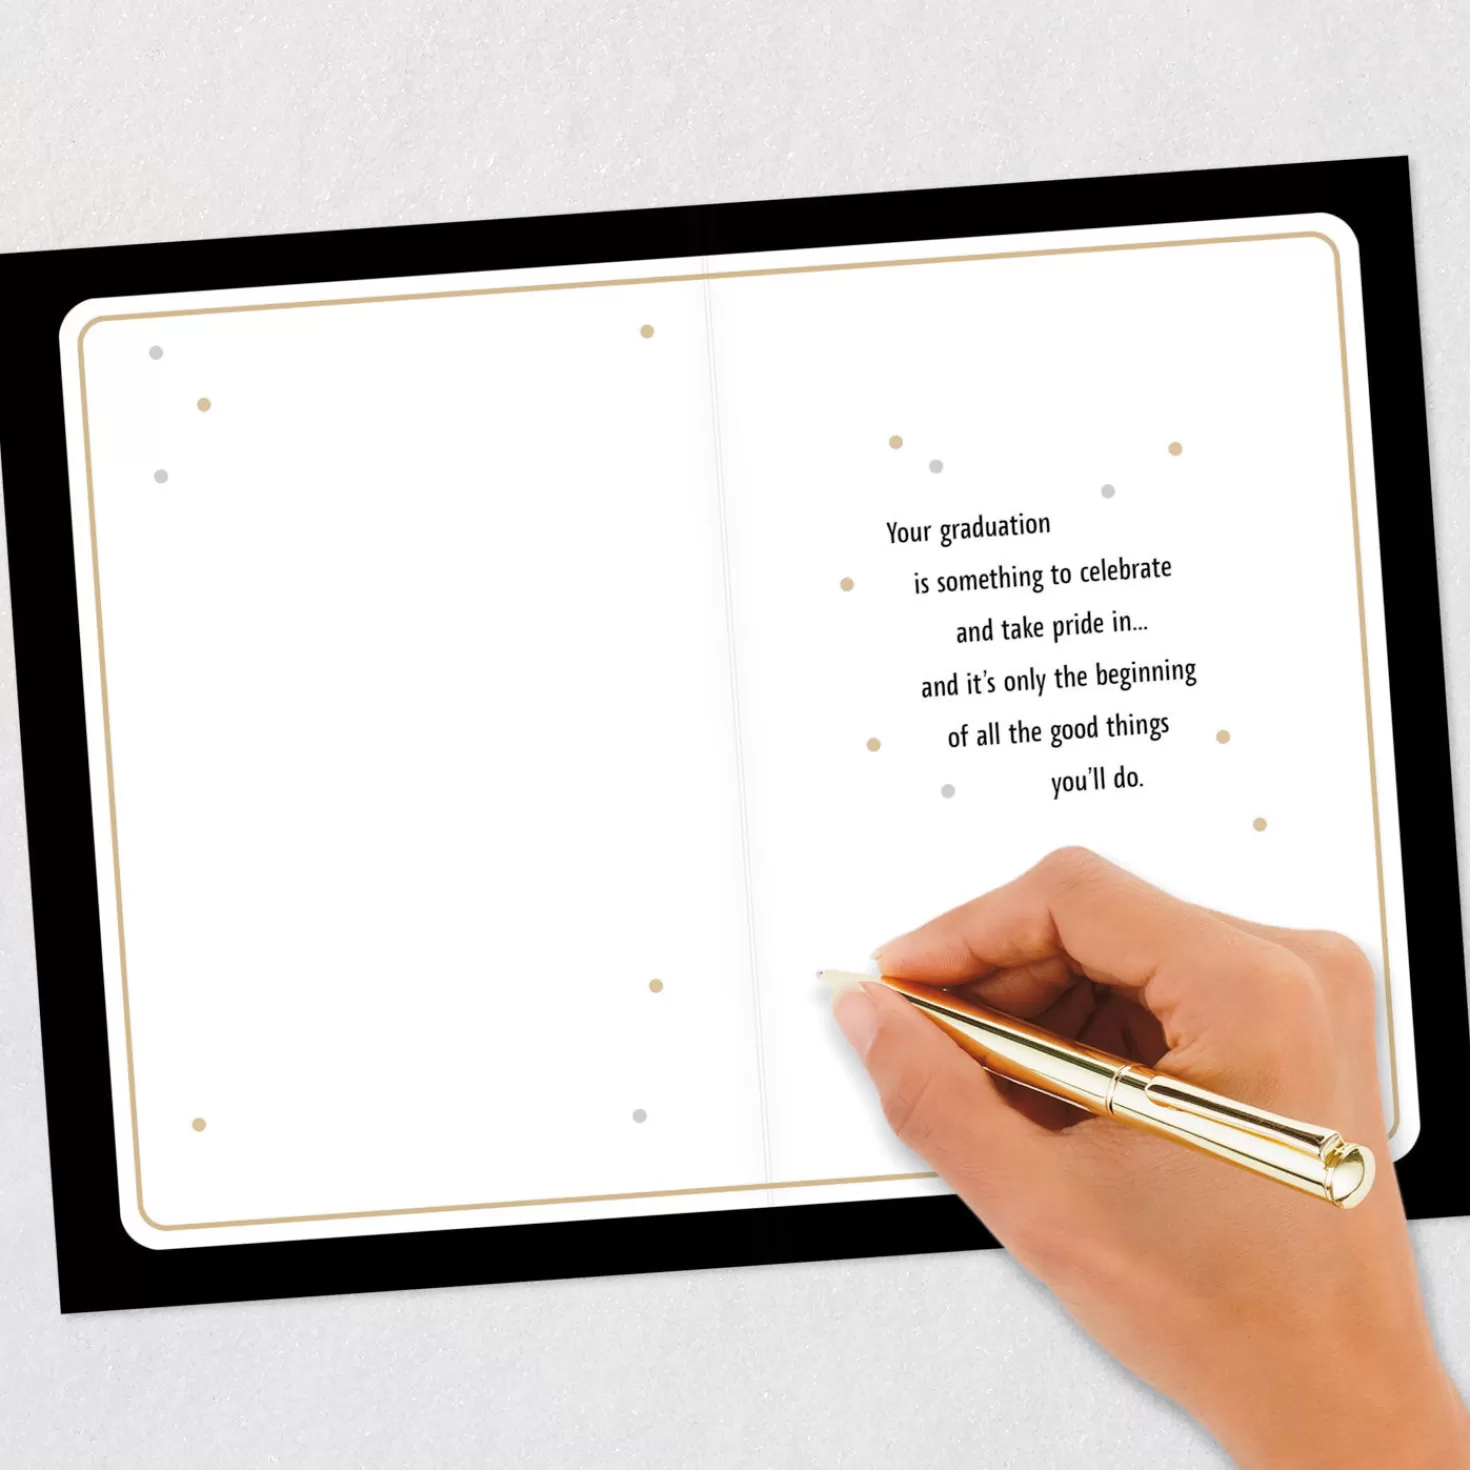 Your graduation
is something to celebrate
and take pride in...
and it’s only the beginning
of all the good things
you’ll do.